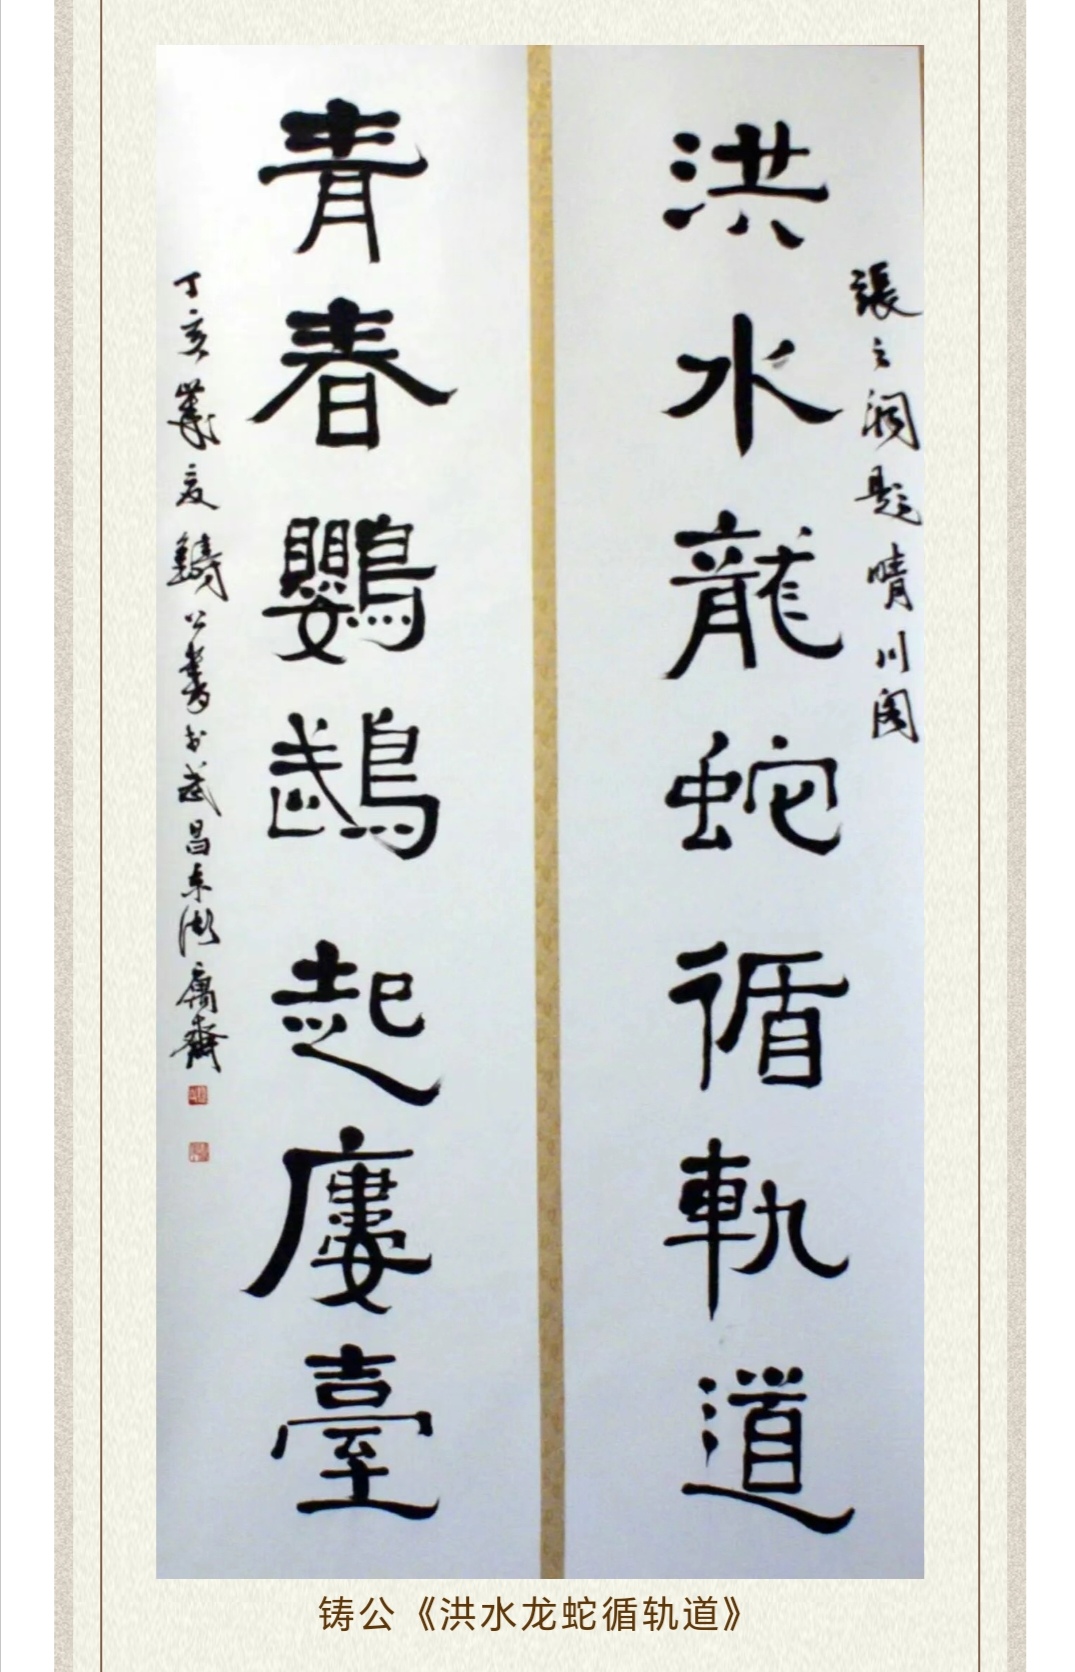 張之洞題晴川閣
洪水龍蛇循軌道
青春鸚鵡起廔臺
丁亥歲夏鑄公書於武昌东湖齋
铸公《洪水龙蛇循轨道》